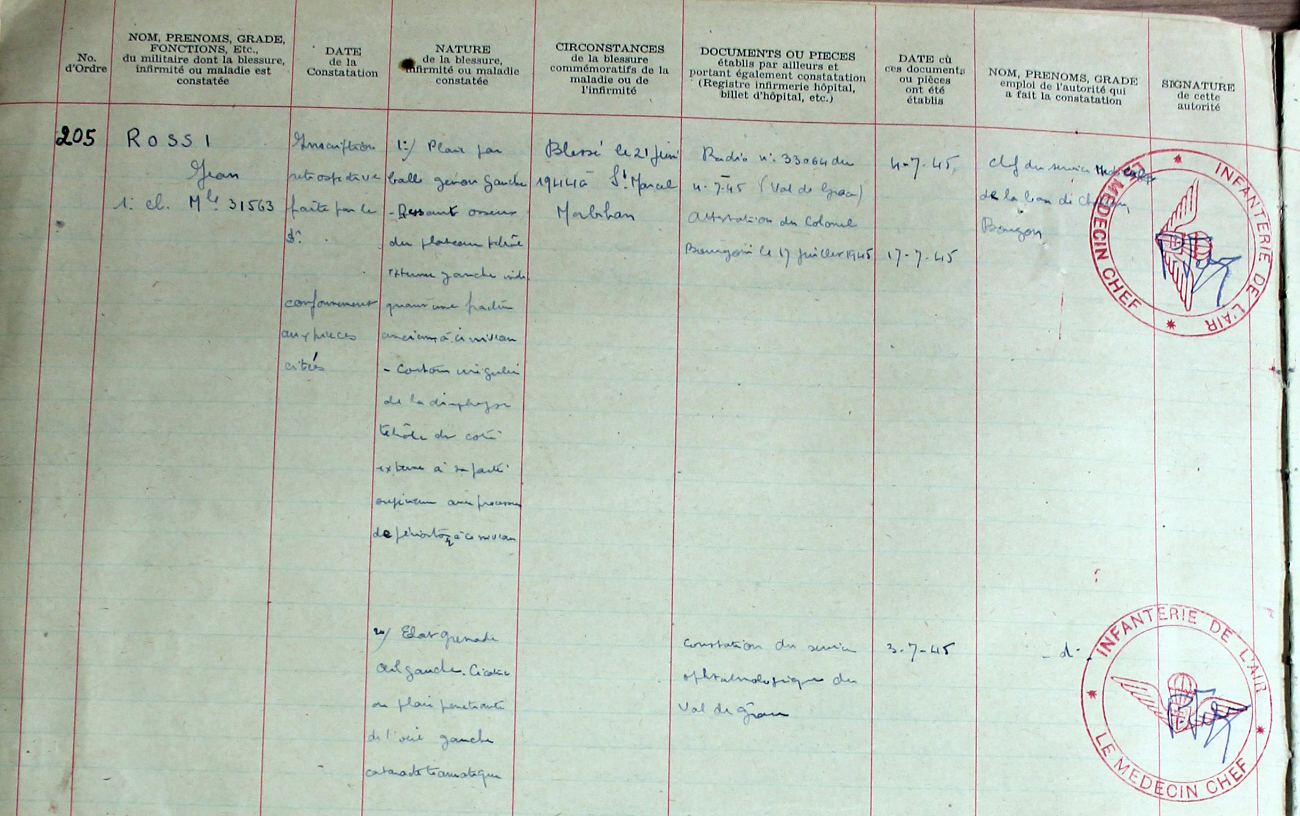 No.
d'Ordre
NOM, PRENOMS, GRADE,
FONCTIONS, Etc.,
du militaire dont la blessure,
infirmité ou maladie est
constatée
DATE
de la
Constatation
NATURE
de la blessure,
infirmité ou maladie
constatée
CIRCONSTANCES
de la blessure
commémoratifs de la
maladie ou de
l'infirmité
DOCUMENTS OU PIECES
établis par ailleurs et
portant également constatation
(Registre infirmerie hôpital,
billet d'hôpital, etc.)
DATE où
ces documents
ou pièces
ont été
établis
NOM, PRENOMS, GRADE
emploi de l'autorité qui
a fait la constatation
SIGNATURE
de cette
autorité
205
ROSSI
Jean
1e cl. Mle 31563
Inscription
retrospective
faite par le
conformement
aux pieces
citées
1:/ Plaie par
balle genou gauche
- osseux
du plateau
externe gauche
ancienne à ce niveau
- Contour irregulier
de la diaphyse
du coté
externe à sa partie
superieure
à ce niveau
2e/ Eclat grenade
œil gauche. Cicatrice
de plaie penetrante
de l' gauche
cataracte traumatique
Blessé le 21 Juin
1944 à St Marcel
Morbihan
Radio n° 33064 du
4-7-45 (Val de Grace)
Attestation du Colonel
Bourgoin le 17 juillet 1945
Constatation du service
ophtalmologique du
Val de Grace
4-7-45,
17-7-45
3-7-45
chef du service
de la
- d° -
INFANTERIE DE L'AIR
LE MEDECIN CHEF
INFANTERIE DE L'AIR
LE MEDECIN CHEF